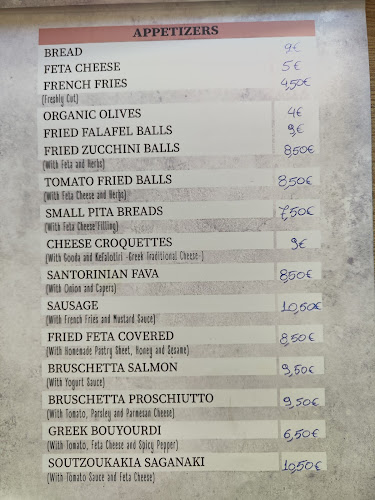 APPETIZERS
BREAD 9€
FETA CHEESE 5€
FRENCH FRIES 4,50€
(Freshly Cut)
ORGANIC OLIVES 4€
FRIED FALAFEL BALLS 9€
FRIED ZUCCHINI BALLS 8,50€
(With Feta and Herbs)
TOMATO FRIED BALLS 8,50€
(With Feta Cheese and Herbs)
SMALL PITA BREADS 7,50€
(With Feta Cheese Filling)
CHEESE CROQUETTES 9€
(With Gouda and Kefalotiri -Greek Traditional Cheese-)
SANTORINIAN FAVA 8,50€
(With Onion and Capers)
SAUSAGE 10,50€
(With French Fries and Mustard Sauce)
FRIED FETA COVERED 8,50€
(With Homemade Pastry Sheet, Honey and Sesame)
BRUSCHETTA SALMON 9,50€
(With Yogurt Sauce)
BRUSCHETTA PROSCHIUTTO 9,50€
(With Tomato, Parsley and Parmesan Cheese)
GREEK BOUYOURDI 6,50€
(With Tomato, Feta Cheese and Spicy Pepper)
SOUTZOUKAKIA SAGANAKI 10,50€
(With Tomato Sauce and Feta Cheese)